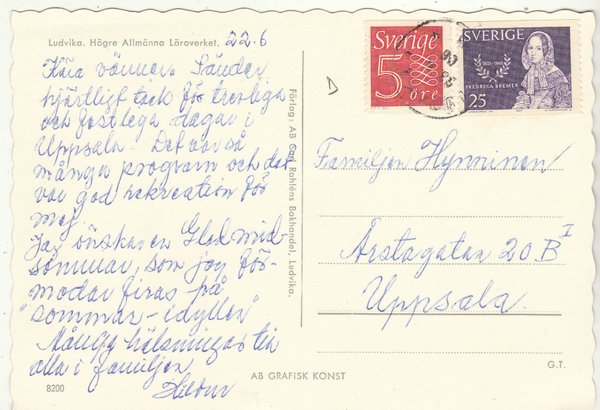 Ludvika. Högre Allmänna Läroverket.
22.6
Kära vänner. Sänder
hjärtligt tack för trevliga
och festliga dagar i
Uppsala. Det var så
många program och det
var god rekreation för
mej
Jag önskar en Glad mid-
sommar, som jag för-
modar firas på
"sommar-idyllen"
Många hälsningar till
alla i familjen
8200
Förlag: AB Carl Rahléns Bokhandel, Ludvika.
AB GRAFISK KONST
Sverige
5
öre
SVERIGE
1801-1865
FREDRIKA BREMER
25
Familjen Hynninen
Årstagatan 20 B I
Uppsala
G.T.